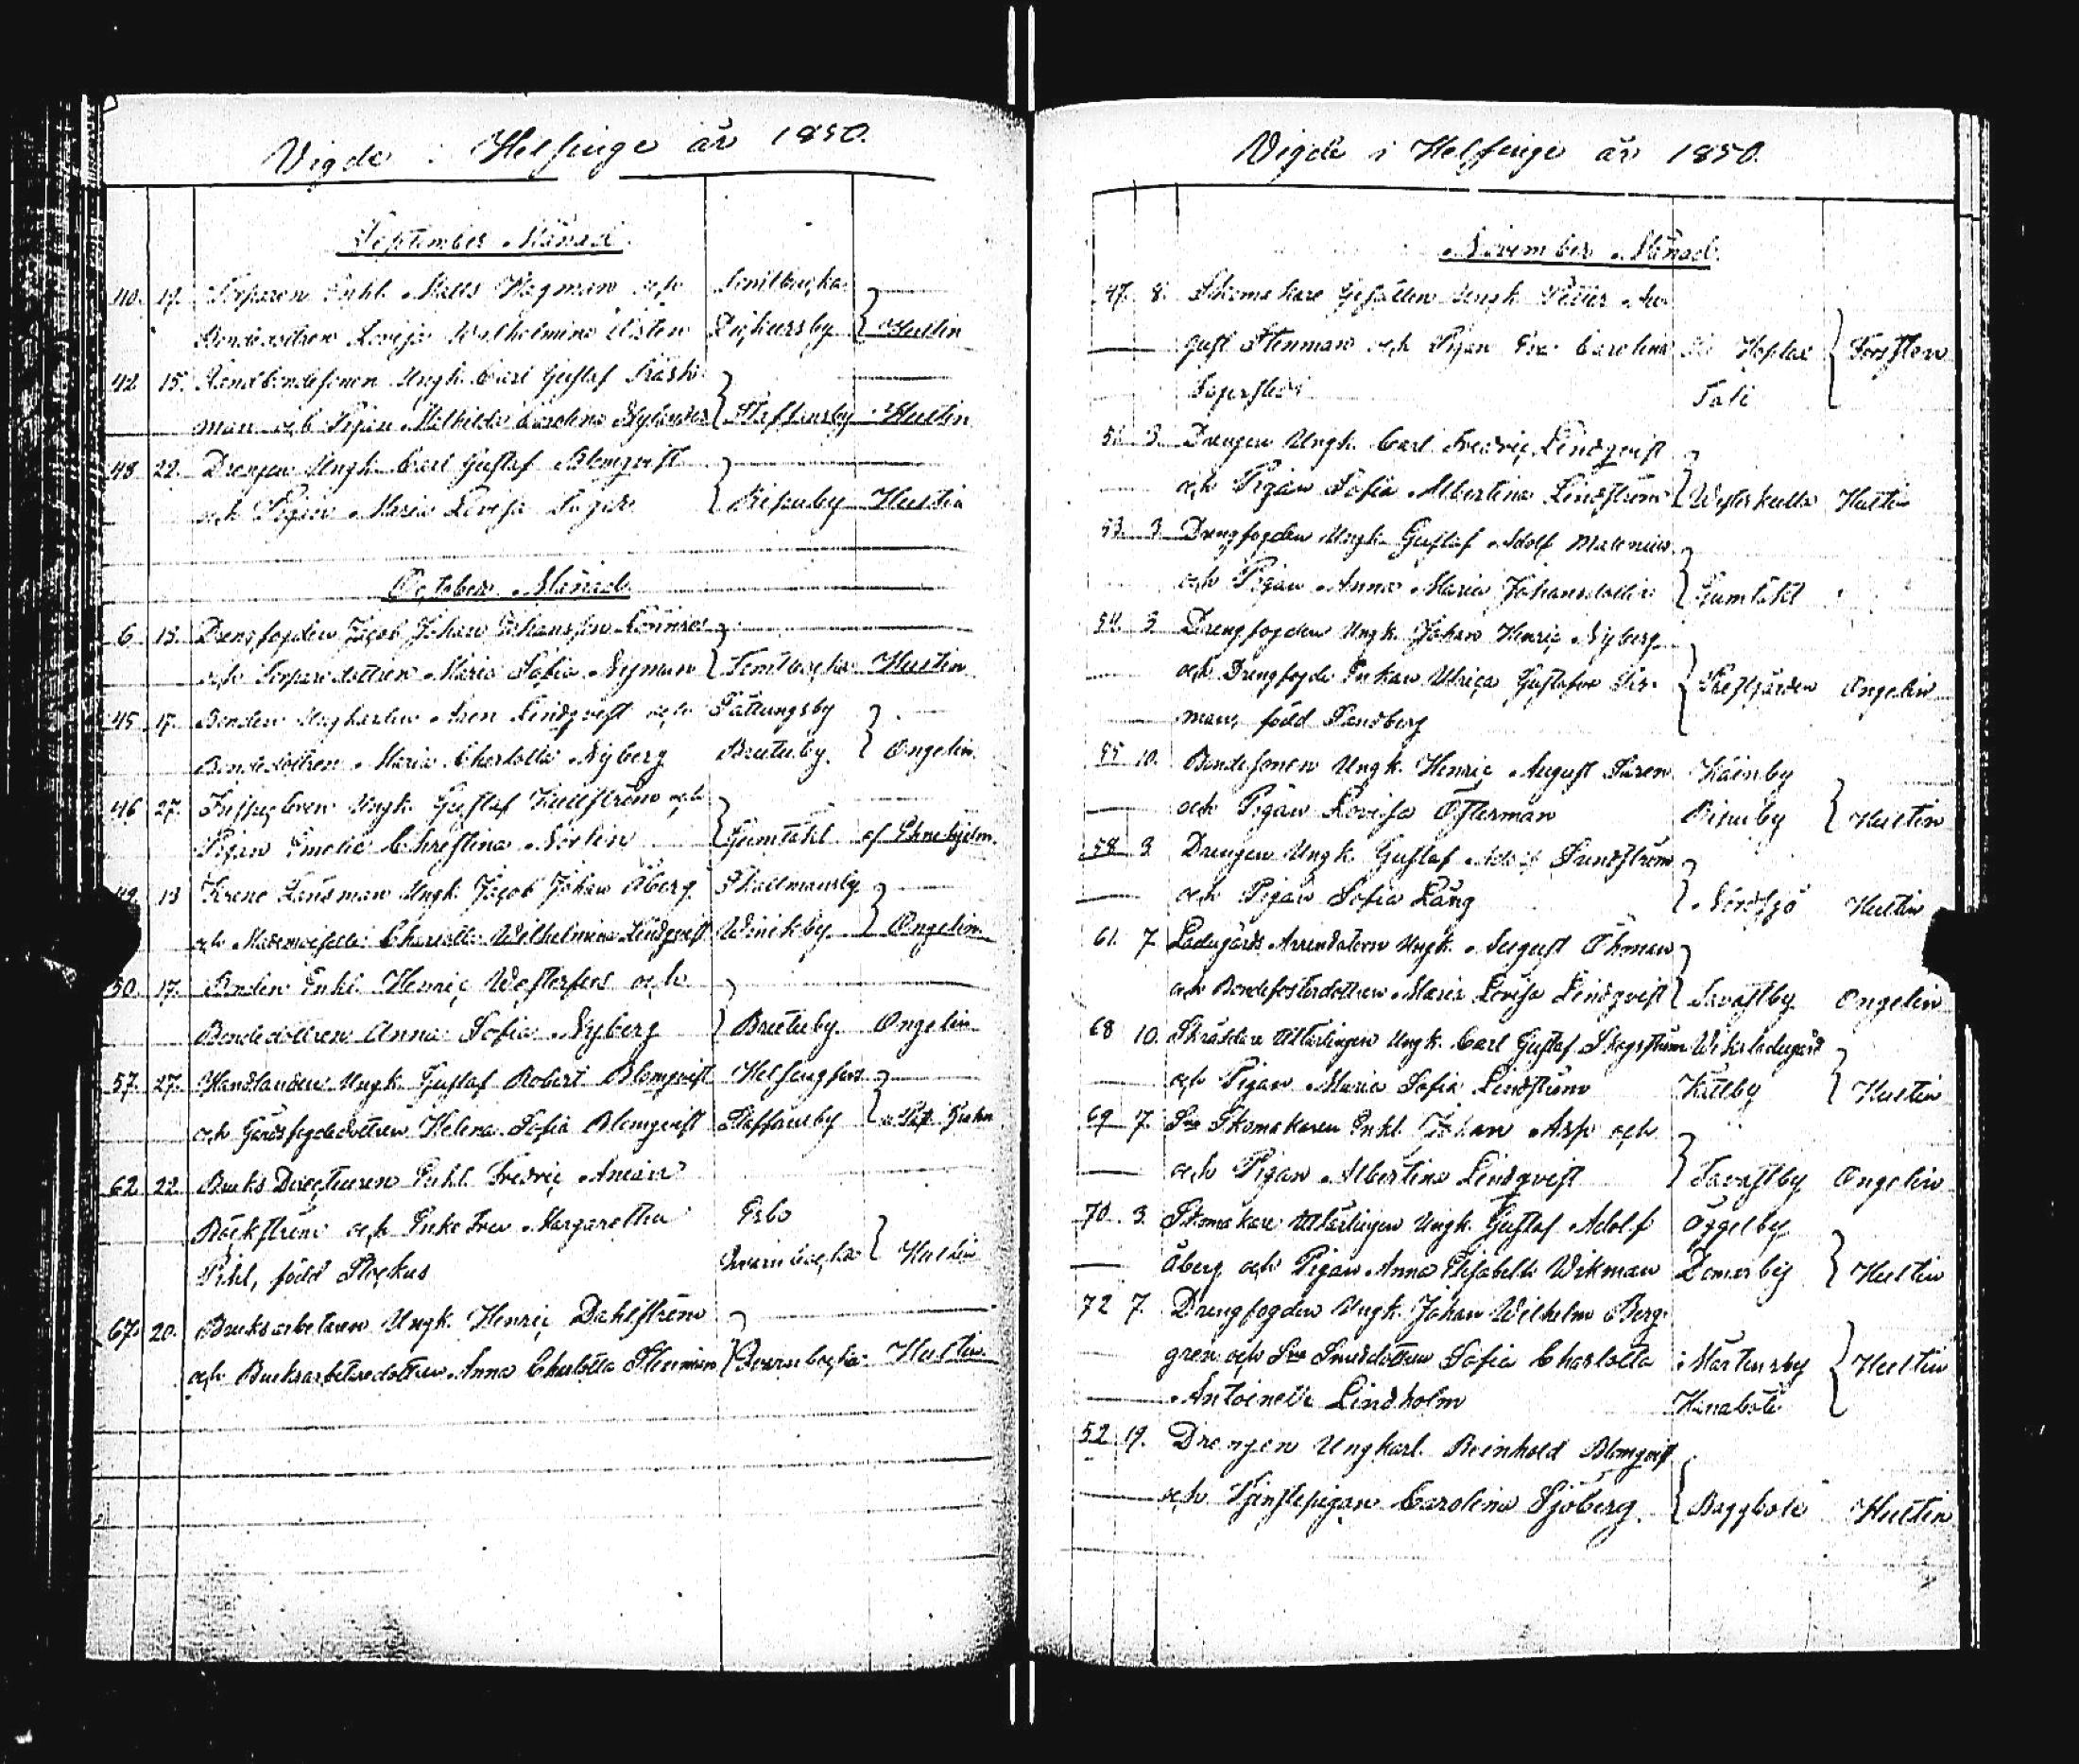 Vigde i Helsinge år 1850.
September Månad.
40. 17. Torparen Enkl. Matts Wagman och Tomtbacka
Bondedottren Lovisa Wilhelmina Dickursby Hultin
42 15. Landbondesonen Ungk. Carl Gustaf
man och Pigan Mathilda Carolina Nylander Staffansby Hultin
48 22. Drengen Ungk. Carl Gustaf Blomqvist
och Pigan Maria Lovisa Biskuby Hultin
October Månad
6. 13. Drengfogden Jacob Johan Johansson Lönnros
och Torparedottren Maria Sofia Nyman Tomtbacka Hultin
45 17. Bonden Ungkarlen Lindqvist och Fättungsby
Bondedottren Maria Charlotta Nyberg Brutuby Ongelin
46 27. Inspectoren Ungk. Gustaf Kullström och
Pigan Emelie Christina Norlin Gumtäkt af Ehnebjelm.
49 13 Krono Länsman Ungk. Jacob Johan Åberg Skattmansby
och Mademoiselle Charlotta Wilhelmina Lindqvist Winikby Ongelin
50. 17. Bonden Enkl. Henric Westerfors och
Bondedottren Anna Sofia Nyberg Brutuby Ongelin
57. 27. Handlanden Ungk. Gustaf Robert Blomqvist Helsingfors
och Gårdsfogdedottren Helena Sofia Blomqvist Staffansby
62 22 Bruks Directeuren Enkl. Fredric Anian
Bäckström och Enke Fru Margaretha Esbo
Pihl, född Stockus Qvarnbacka Hultin
67. 20. Bruksarbetaren Ungk. Henric Dahlström
och Bruksarbetaredottren Anna Charlotta Stenman Qvarnbacka Hultin
Vigde i Helsinge år 1850.
November Månad.
47. 8. Skomakare Gesällen Ungk. Petter Au-
gust Stenman och Pigan Eva Carolina Hoplax Forsten
Fagerstedt Tali
51. 3. Drengen Ungk. Carl Fredric Lindqvist
och Pigan Sofia Albertina Lindström Westerkulla Hultin
53. 3. Drengfogden Ungk. Gustaf Adolf Malenius
och Pigan Anna Maria Johansdotter Gumtäkt
54. 3. Drengfogden Ungk. Johan Henric Nyberg
och Drengfogde Enkan Ulrica Gustafva Prestgården Ongelin
man, född Sandberg
55 10. Bondesonen Ungk. Henric August Käinby
och Pigan Lovisa Österman Biskuby Hultin
58 3 Drengen Ungk. Gustaf Adolf Sundström
och Pigan Sofia Lång Nordsjö Hultin
61. 7 Ladugårds Arrendatorn Ungk. August Öhman
och Bondefosterdottren Maria Lovisa Lindqvist Savastby Ongelin
68 10. Skräddare Mlärlingen Ungk. Carl Gustaf Skogström Wiksladugård
och Pigan Maria Sofia Lindström Kullby Hultin
69 7. Sne Skomakaren Enkl. Johan Asp och
och Pigan Albertina Lindqvist Savastby Ongelin
70 3. Skomakare Mlärlingen Ungk. Gustaf Adolf Öggelby
Åberg och Pigan Anna Elisabeth Wikman Domarby Hultin
72 7. Drengfogden Ungk. Johan Wilhelm Berg-
gren och Sne Smedsdottren Sofia Charlotta Mårtensby Hultin
Antoinette Lindholm Hanaböle
52 19. Drengen Ungkarl. Reinhold Blomqvist
och Tjenstepigan Carolina Sjöberg. Baggböle Hultin